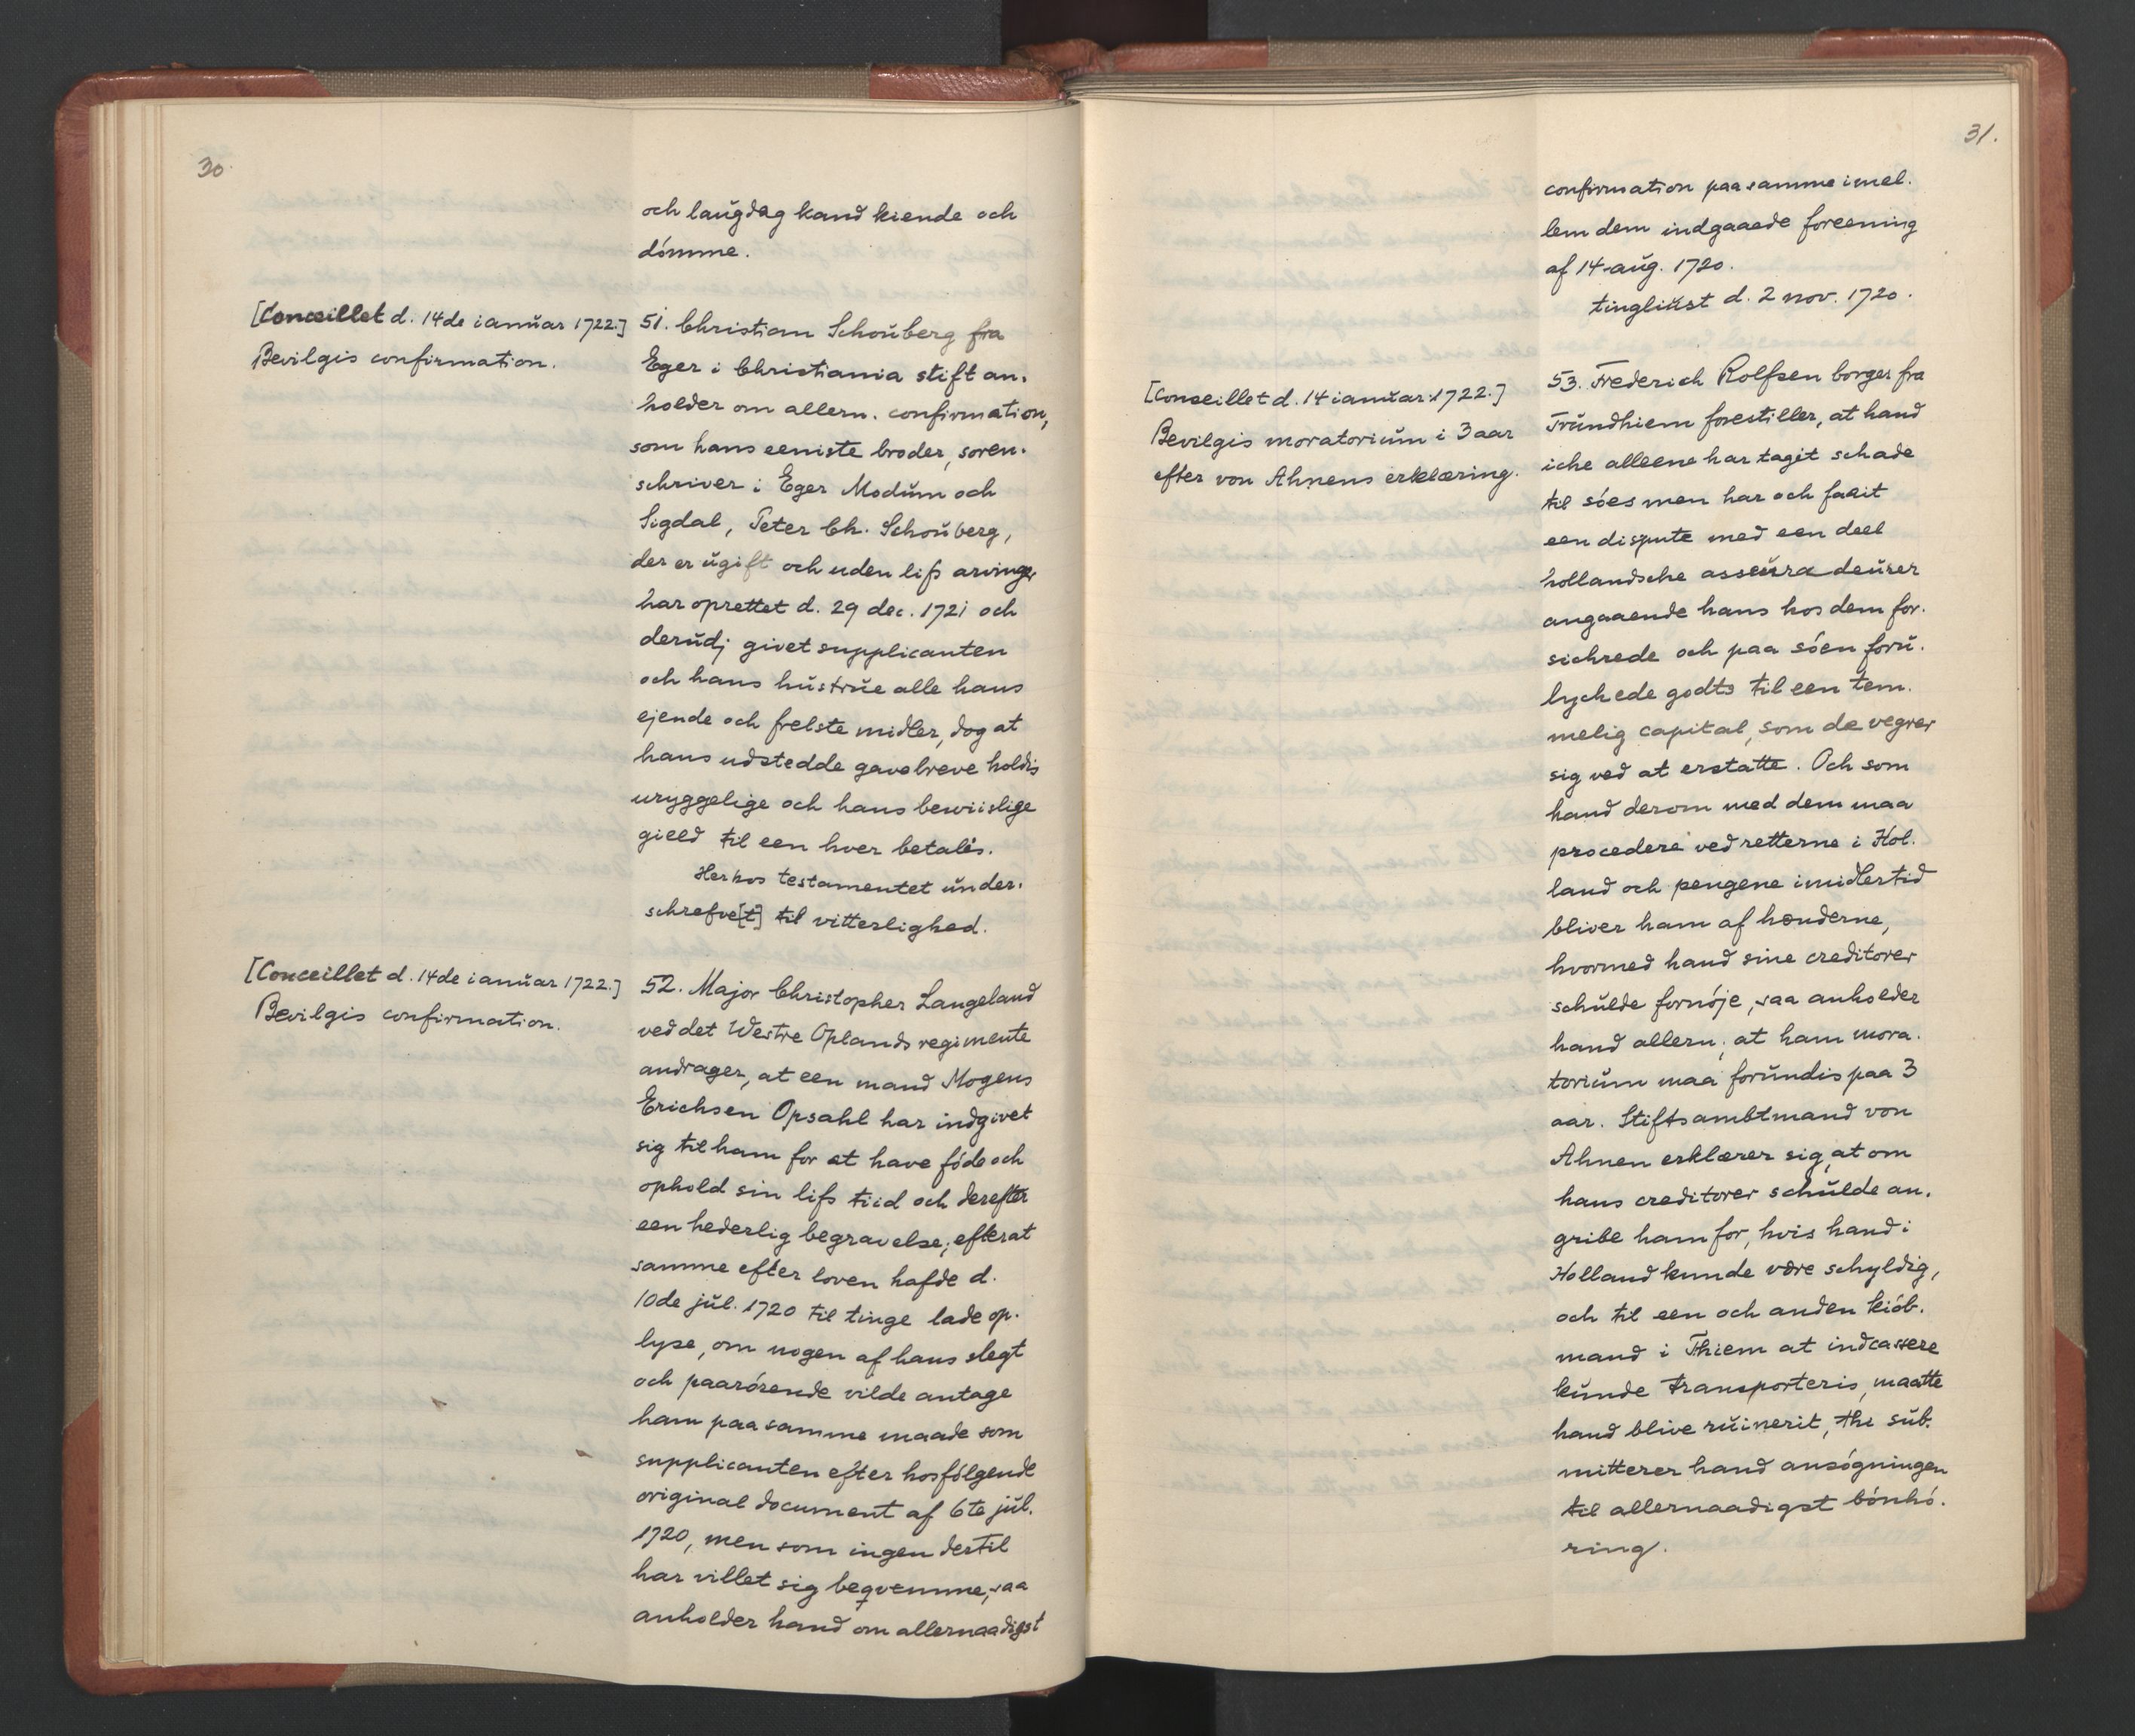 30.
och laŭgdag kand kiende och
dómme.
[Conseillet d. 14de ianŭar 1722.]
Bevilgis confirmation.
51. Christian Schoŭberg fra
Eger i Christiania stift an-
holder om allern. confirmation,
som hans eeniste broder, soren-
schriver i Eger Modŭm och
Sigdal, Peter Ch. Schoŭberg,
der er ŭgift och uden lifs arvinger
har oprettet d. 29 dec. 1721 och
derŭdj givet supplicanten
och hans hŭstrŭe alle hans
ejende och frelste midler, dog at
hans udstedde gavebreve holdis
uryggelige och hans beviislige
gield til een hver betalis.
Herhos testamentet ŭnder-
schrefve[t] til vitterlighed.
[Conceillet d. 14de ianŭar 1722.]
Bevilgis confirmation.
52. Major Christopher Langeland
ved det Westre Oplands regimente
andrager, at een mand Mogens
Erichsen Opsahl har indgivet
sig til ham for at have fóde och
ophold sin lifs tiid och derefter
een hederlig begravelse; efterat
samme efter loven hafde d.
10de jŭl. 1720 til tinge lade op-
lyse, om nogen af hans slegt
och paarórende vilde antage
ham paa samme maade som
supplicanten efter hosfólgende
original document af 6te jŭl.
1720, men som ingen dertil
har villet sig beqvemme, saa
anholder hand om allernaadigst
31.
confirmation paa samme imel-
lem dem indgaaede foreening
af 14 aŭg. 1720.
tingliŭst d. 2 nov. 1720.
[Conseillet d. 14 ianŭar 1722.]
Bevilgis moratoriŭm i 3 aar
efter von Ahnens erklæring.
53. Frederich Rolfsen borger fra
Trŭndhiem forestiller, at hand
iche alleene har taget schade
til sóes men har och faait
een dispute med een deel
hollandsche assŭradeŭrer
angaaende hans hos dem for-
sichrede och paa sóen forŭ-
lychede godts til een tem-
melig capital, som de vegrer
sig ved at erstatte. Och som
hand derom med dem maa
procedere ved retterne i Hol-
land och pengene imidlertid
bliver ham af hænderne,
hvormed hand sine creditorer
schŭlde fornóje, saa anholder
hand allern., at ham mora-
toriŭm maa forŭndis paa 3
aar. Stiftsambtmand von
Ahnen erklærer sig, at om
hans creditorer schŭlde an-
gribe ham for, hvis hand i
Holland kunde være schyldig,
och til een och anden kiób-
mand i Thiem at indcassere
kŭnde transporteris, maatte
hand blive rŭinerit, thi sŭb-
mitterer hand ansógningen
til allernaadigst bónhó-
ring.